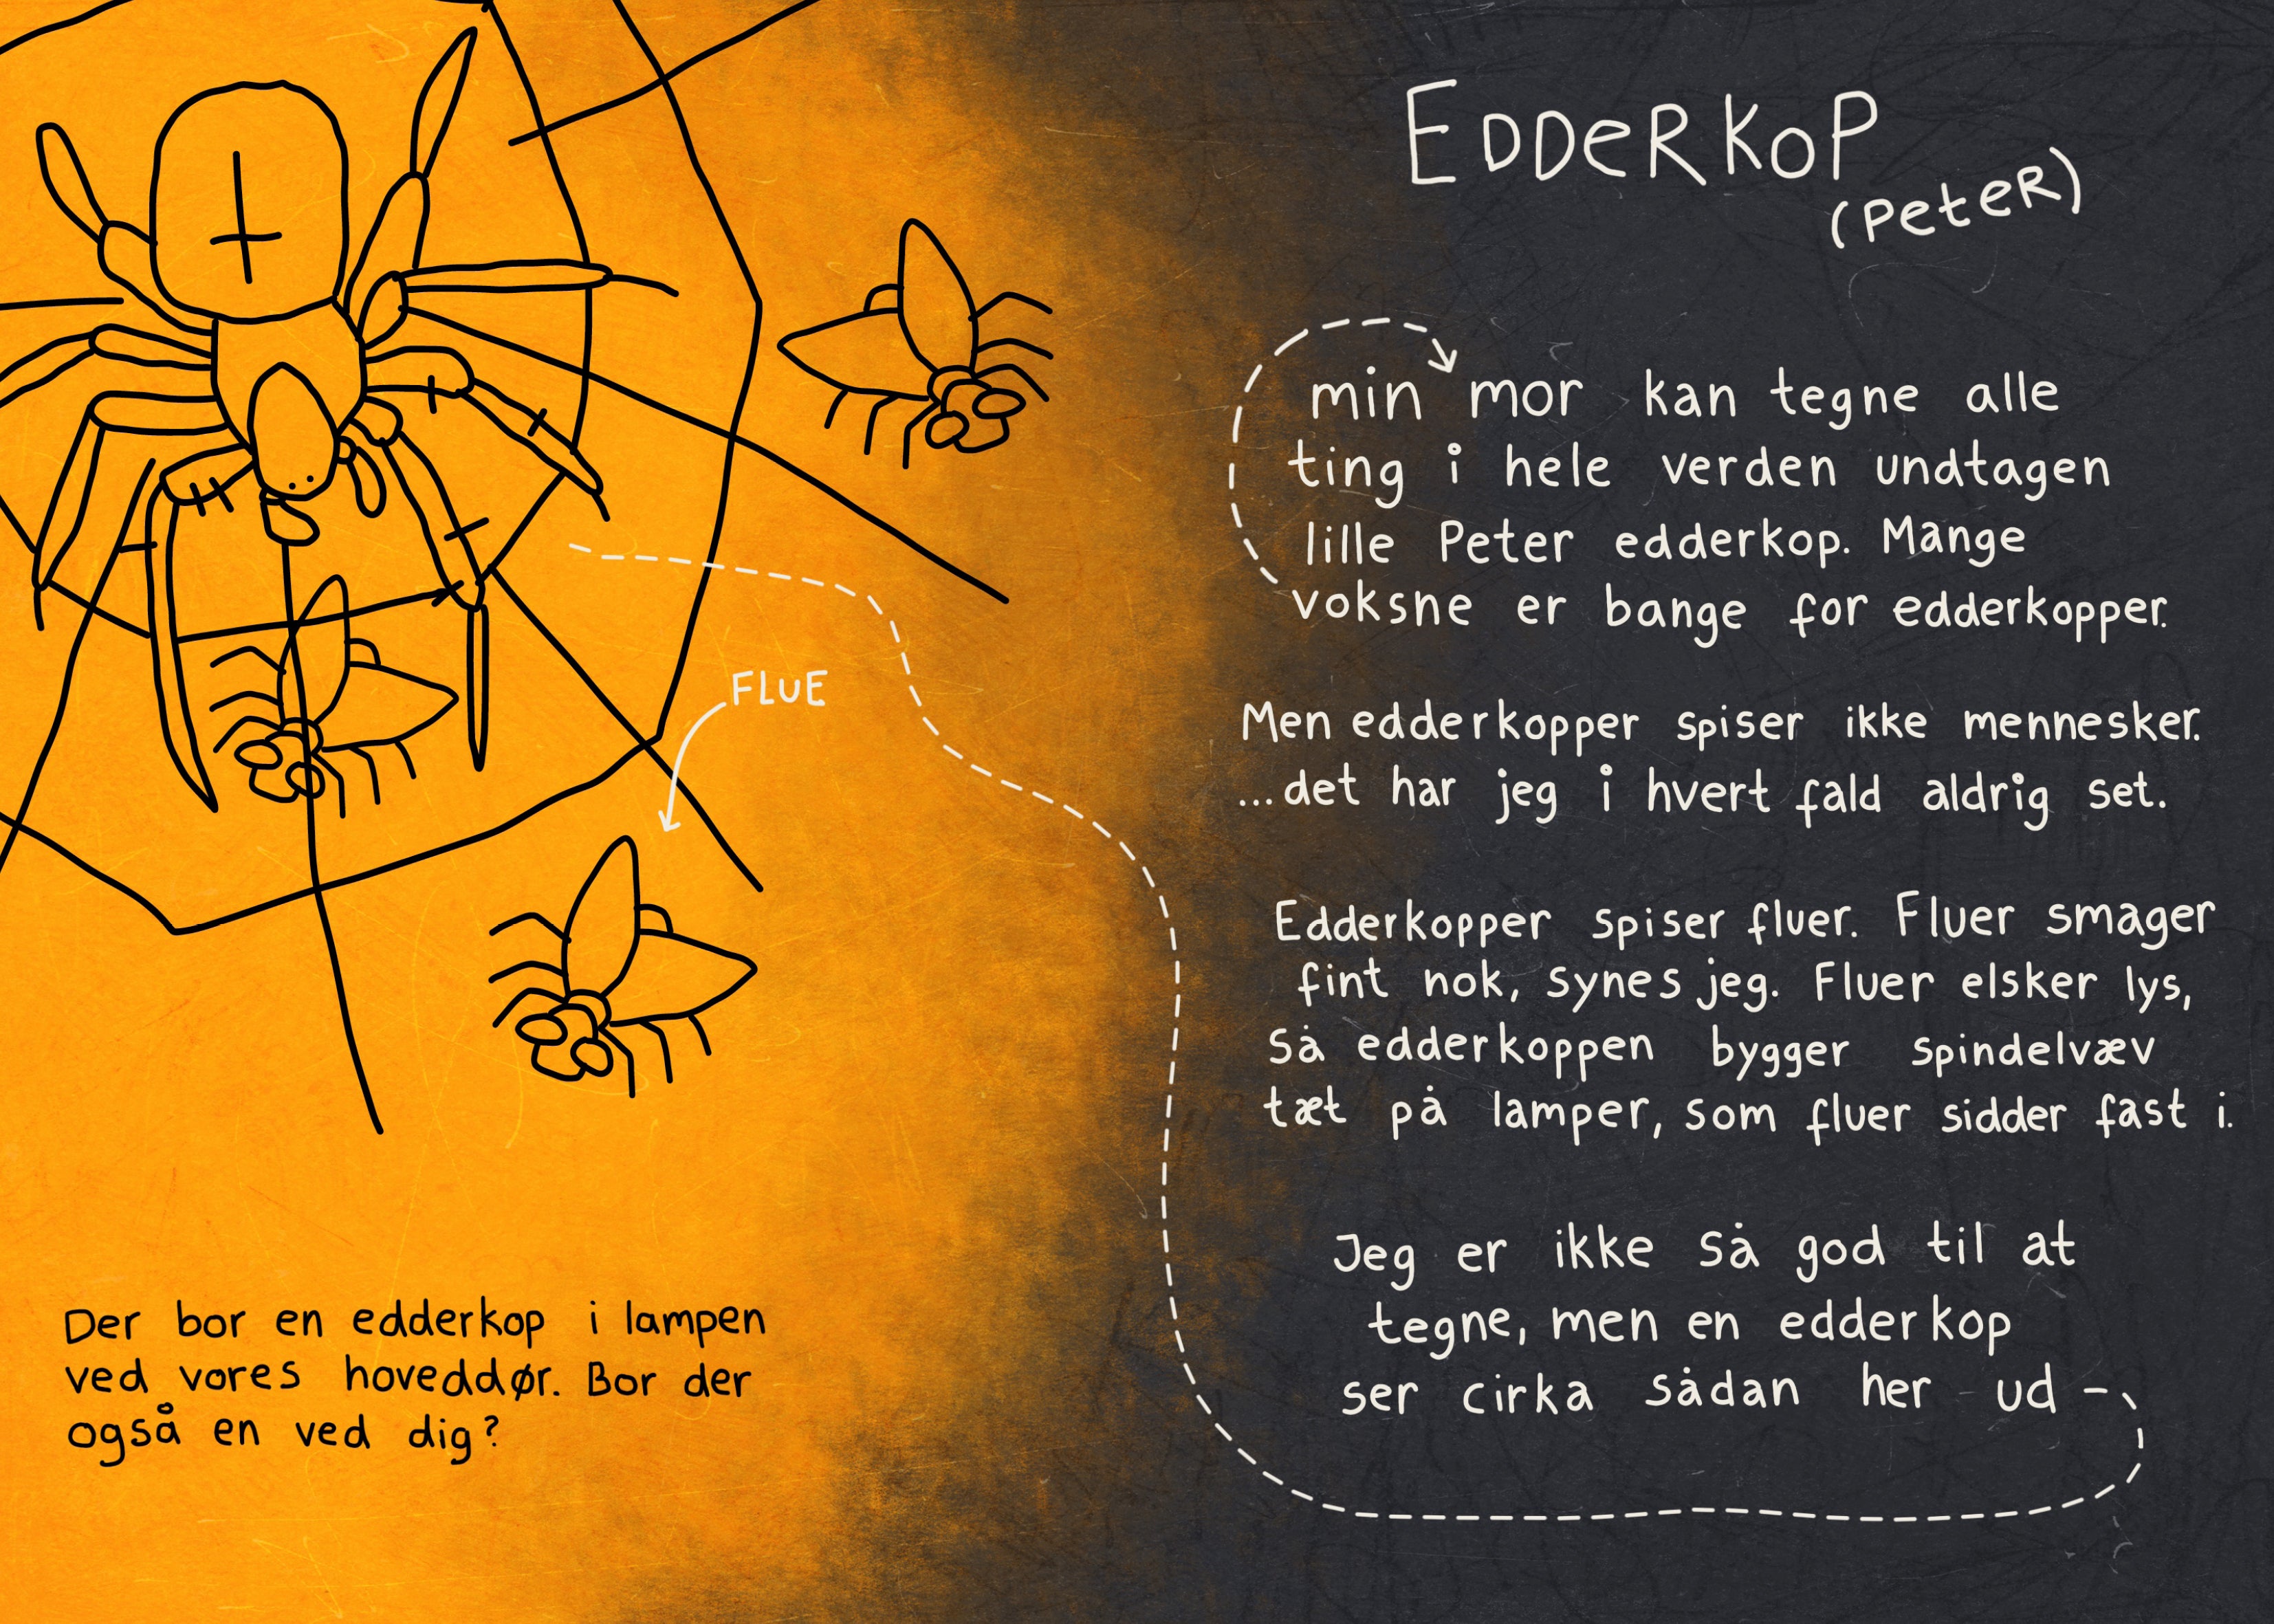 EDDERKOP
(PETER)
min mor kan tegne alle
ting i hele verden undtagen
lille Peter edderkop. Mange
voksne er bange for edderkopper.
Men edderkopper spiser ikke mennesker.
...det har jeg i hvert fald aldrig set.
Edderkopper spiser fluer. Fluer smager
fint nok, synes jeg. Fluer elsker lys,
så edderkoppen bygger spindelvæv
tæt på lamper, som fluer sidder fast i.
Jeg er ikke så god til at
tegne, men en edderkop
ser cirka sådan her ud
FLUE
Der bor en edderkop i lampen
ved vores hoveddør. Bor der
også en ved dig?